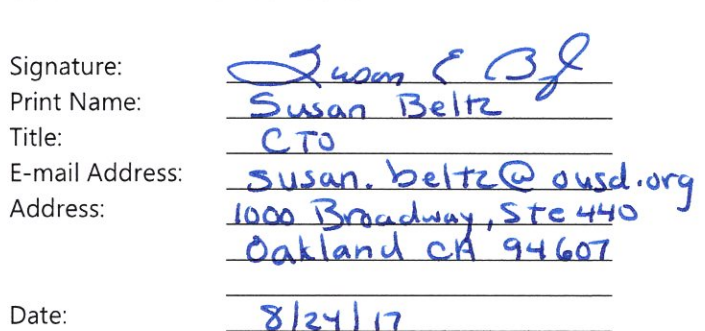 Signature: Susan E B
Print Name: Susan Beltz
Title: CTO
E-mail Address: susan.beltz@ousd.org
Address: 1000 Broadway, Ste 440
Oakland CA 94607
Date: 8/24/17